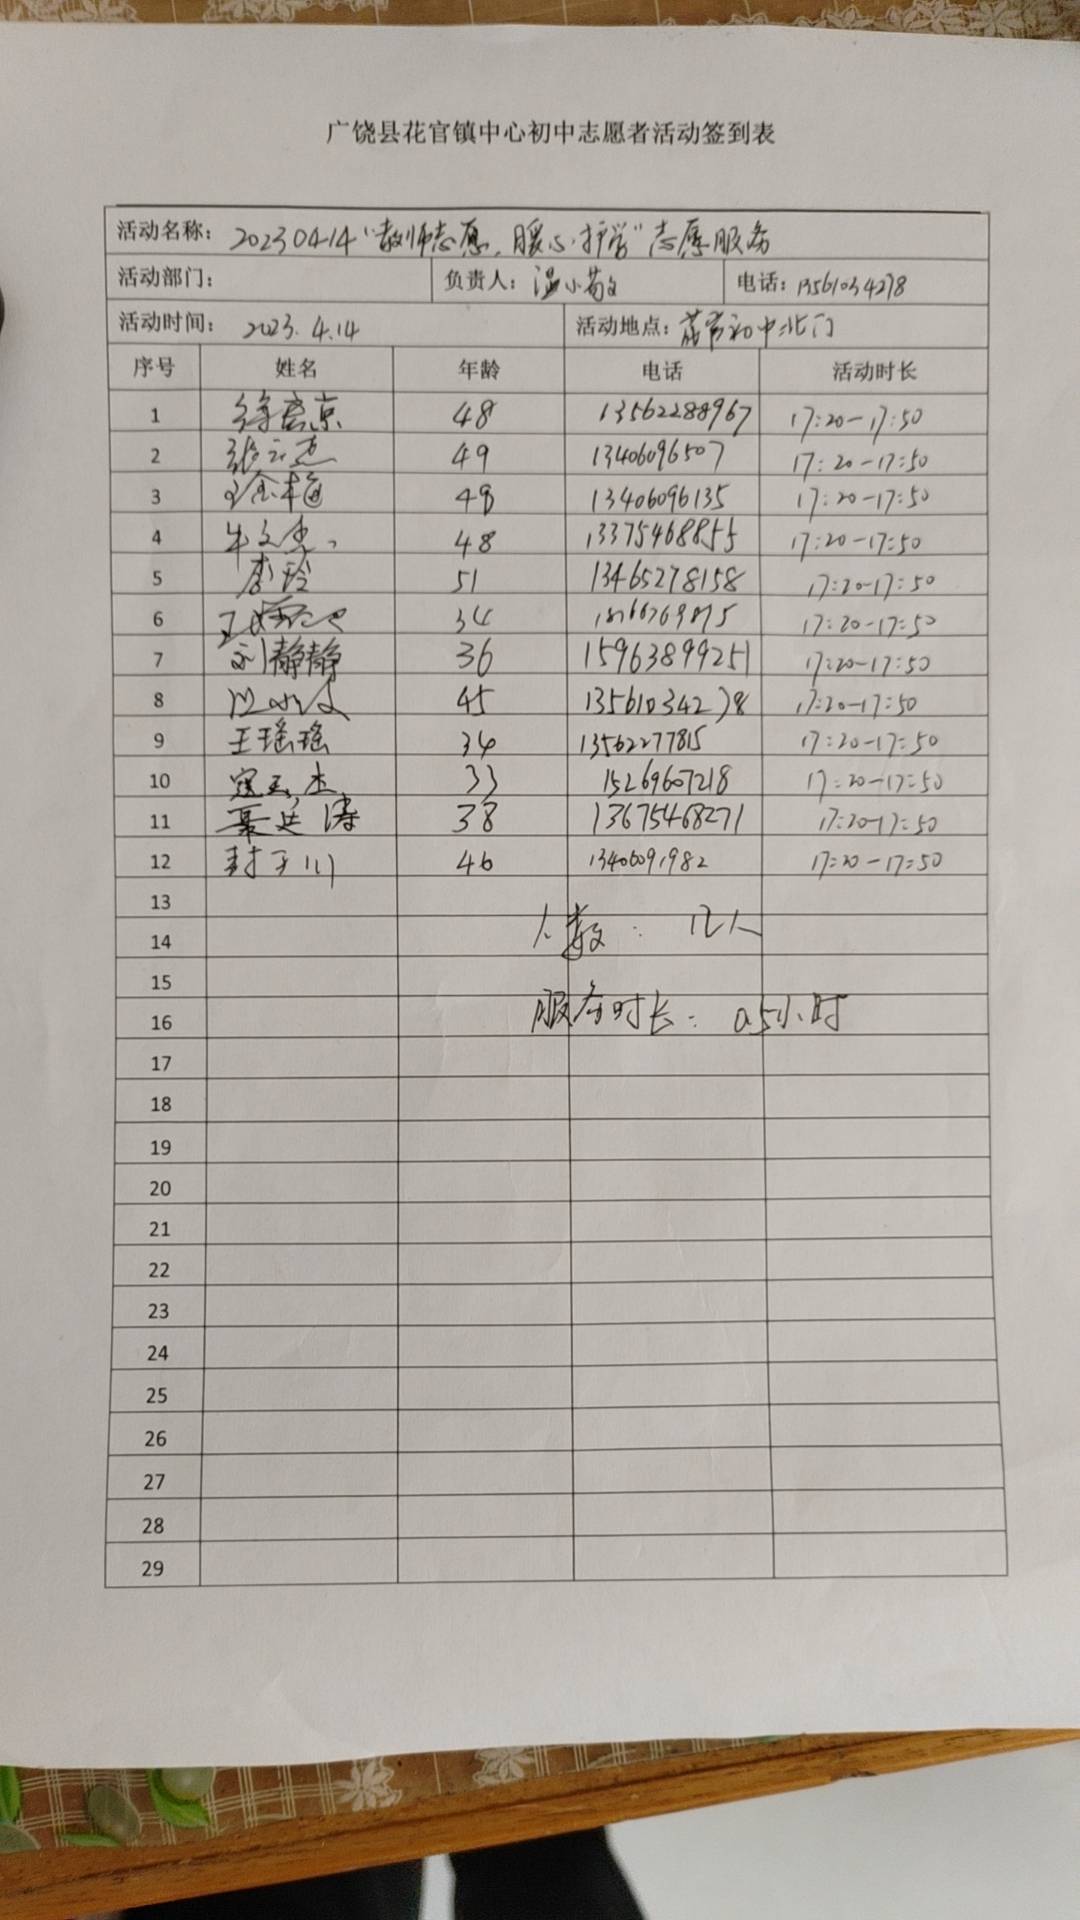 广饶县花官镇中心初中志愿者活动签到表
活动名称: 20230414“教师志愿,暖心护学”志愿服务
活动部门: 负责人: 温小 电话: 13561034278
活动时间: 2023.4.14 活动地点: 花官初中北门
序号 姓名 年龄 电话 活动时长
1 48 13562288967 17:20-17:50
2 49 13406096507 17:20-17:50
3 王金梅 48 13406096135 17:20-17:50
4 牛文 48 13375468855 17:20-17:50
5 李玲 51 13465278158 17:20-17:50
6 34 17:20-17:50
7 刘静静 36 15963899251 17:20-17:50
8 45 13561034278 17:20-17:50
9 王瑶瑶 34 13562277815 17:20-17:50
10 寇玉杰 33 15269607218 17:20-17:50
11 聂廷涛 38 13675468271 17:20-17:50
12 封于川 46 13406091982 17:20-17:50
13
14 人数: 12人
15
16 服务时长: 0.5小时
17
18
19
20
21
22
23
24
25
26
27
28
29